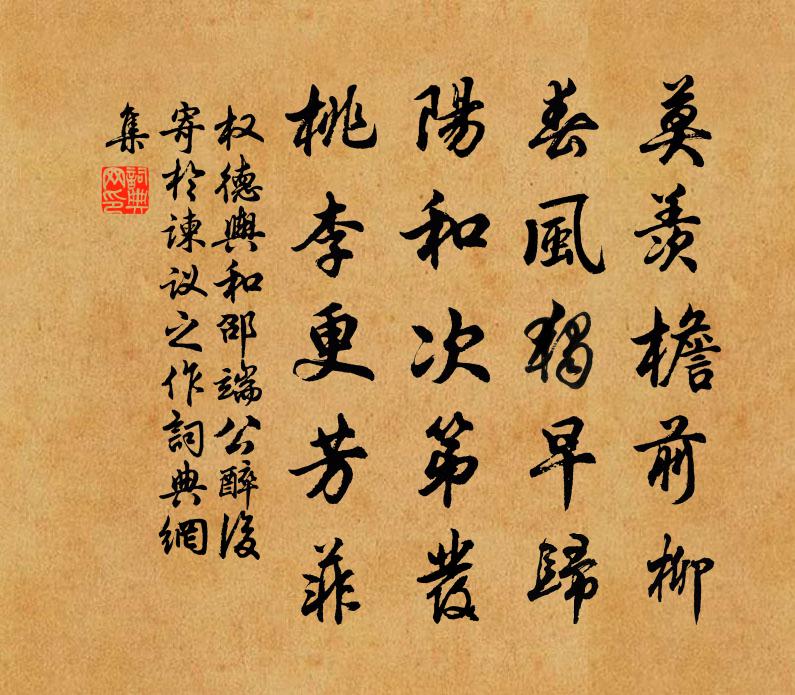 莫羨檐前柳
春風獨早歸
陽和次第發
桃李更芳菲
权德輿和邵端公醉後
寄於諫议之作詞典網
集
詞典網印